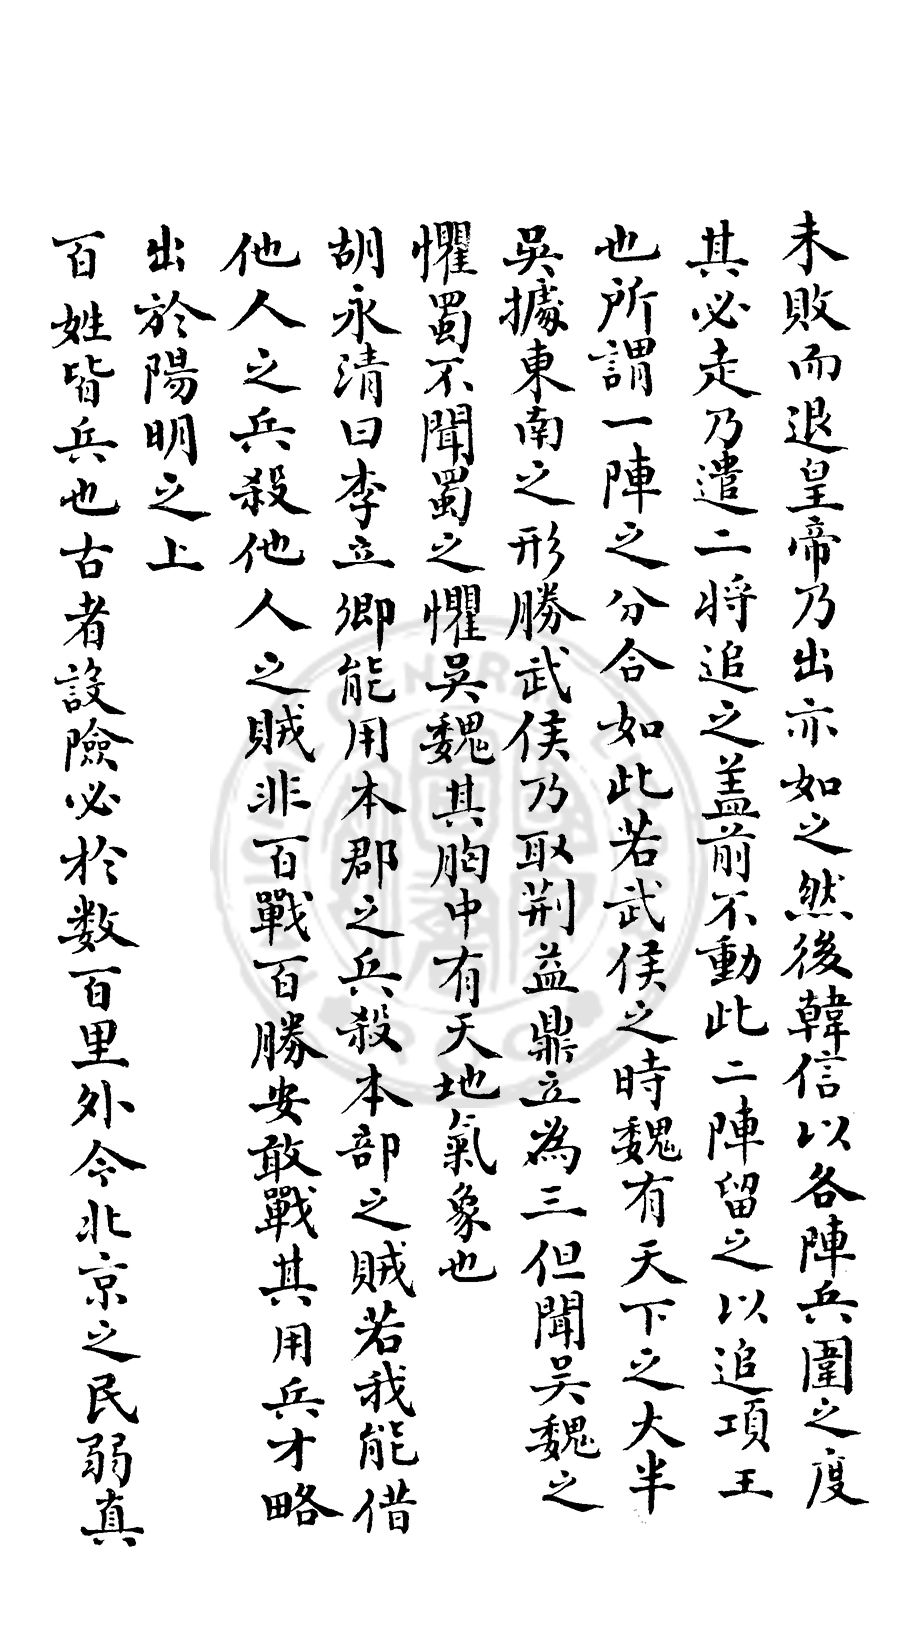 未敗而退皇帝乃出亦如之然後韓信以各陣兵圍之度
其必走乃遣二將追之盖前不動此二陣留之以追項王
也所謂一陣之分合如此若武侯之時魏有天下之大半
吳據東南之形勝武侯乃取荆益鼎立為三但聞吳魏之
懼蜀不聞蜀之懼吳魏其胸中有天地氣象也
胡永清曰李立卿能用本郡之兵殺本部之賊若我能借
他人之兵殺他人之賊非百戰百勝安敢戰其用兵才略
出於陽明之上
百姓皆兵也古者設險必於数百里外今北京之民弱真